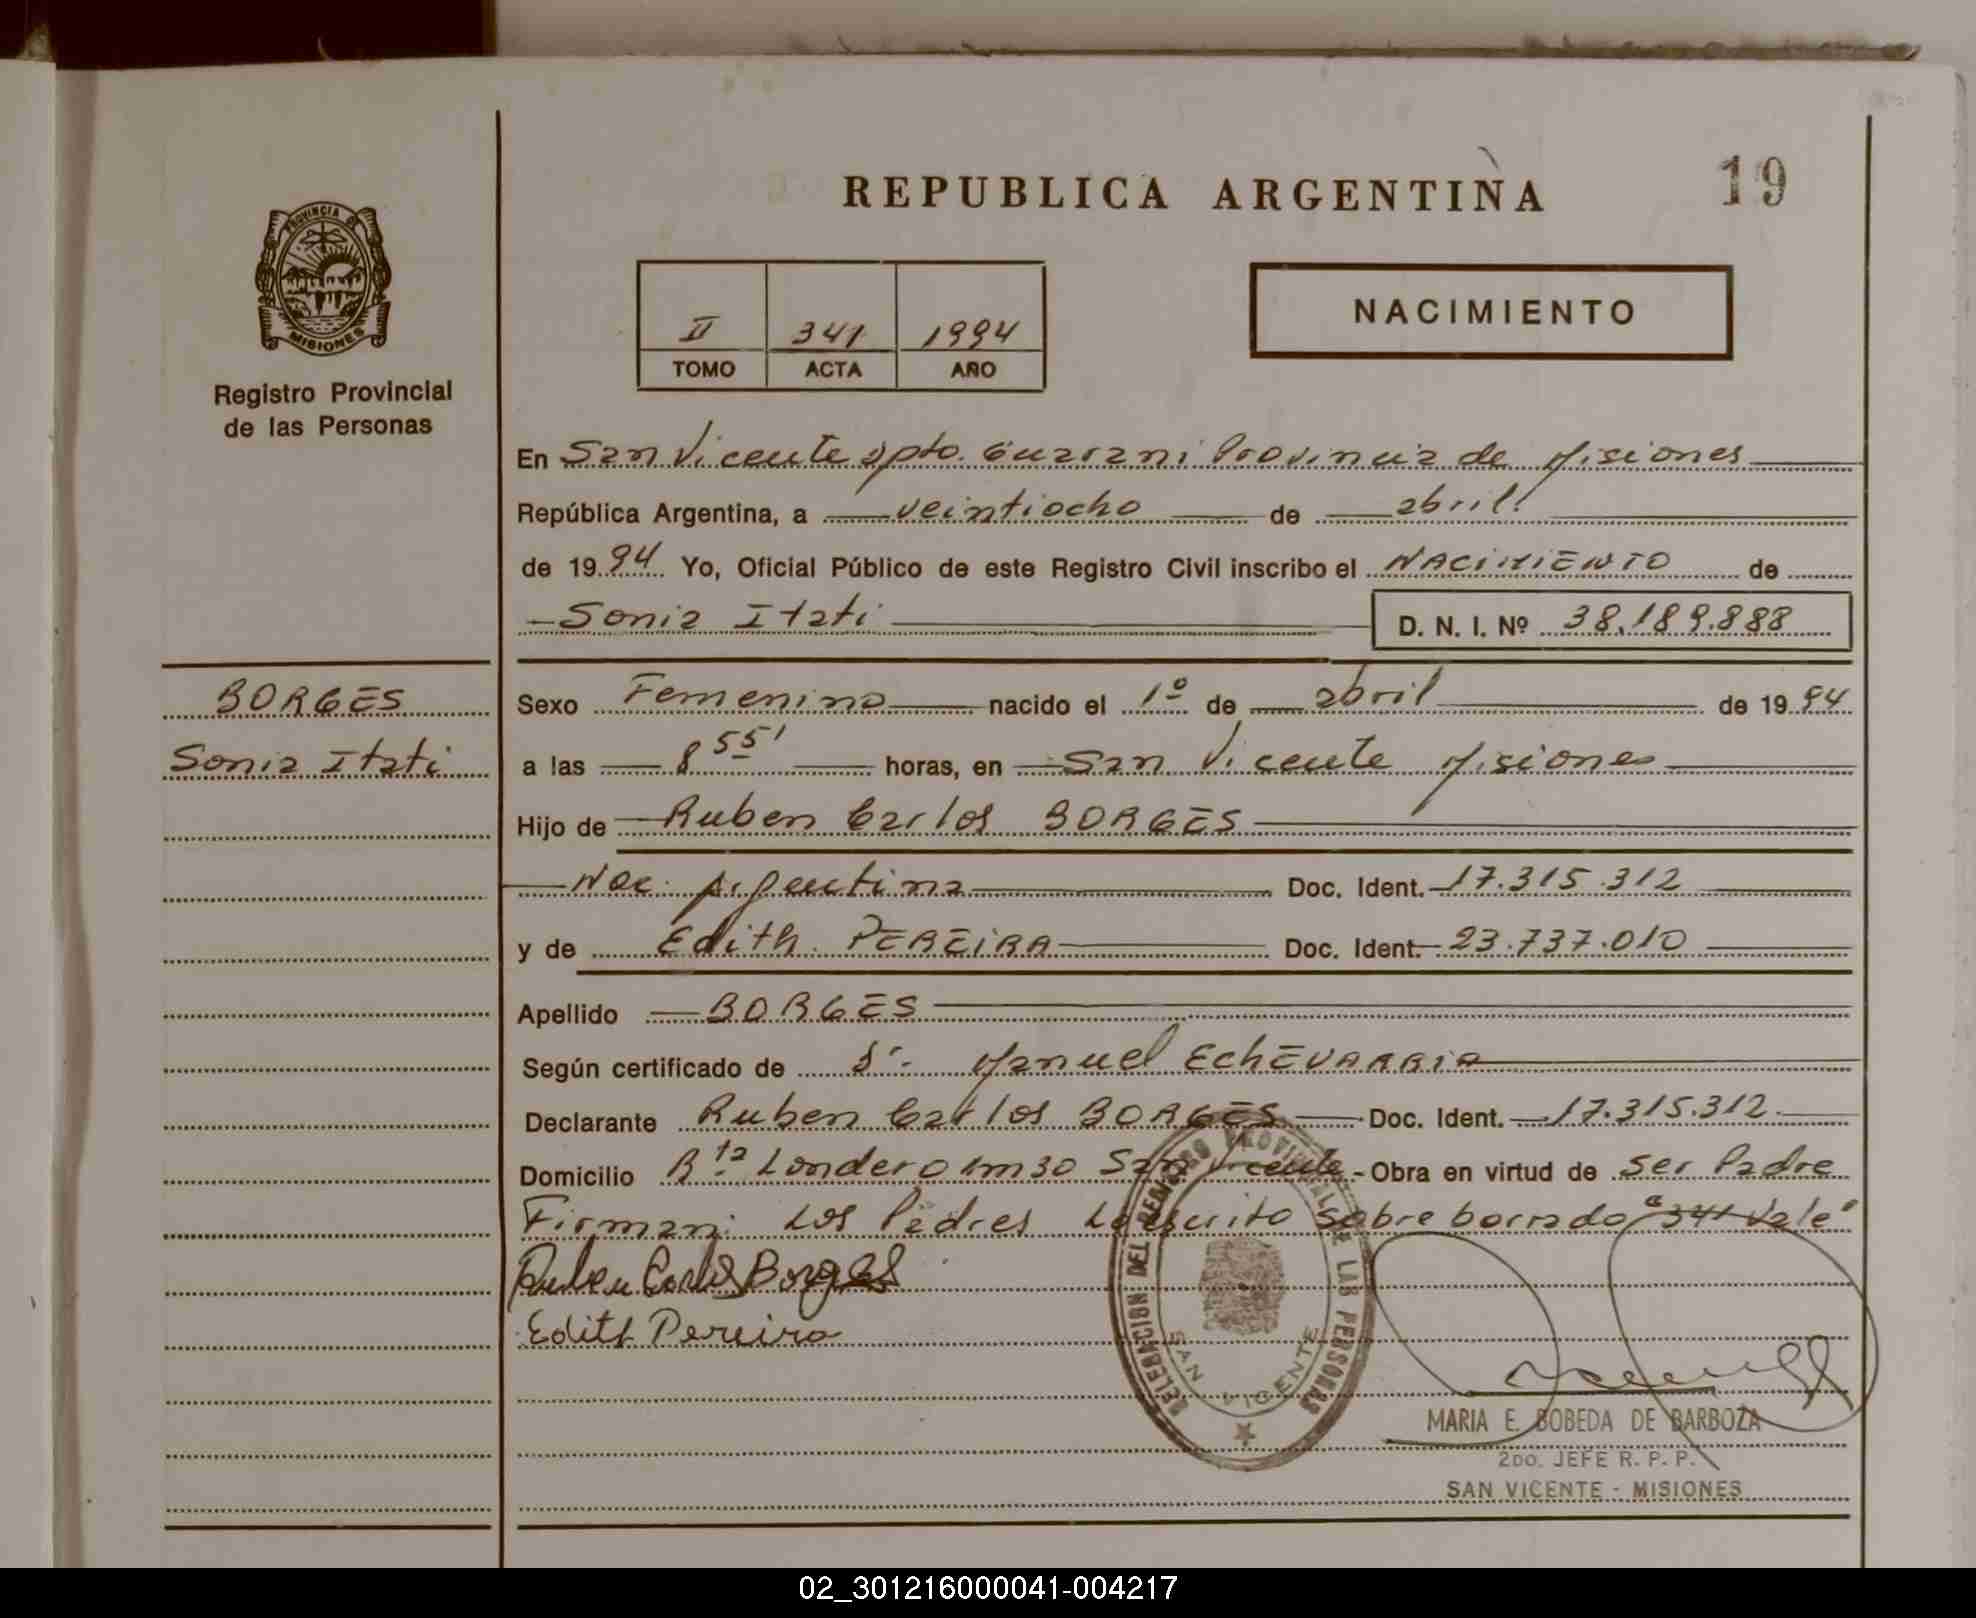 REPUBLICA ARGENTINA
19
PROVINCIA DE
MISIONES
Registro Provincial
de las Personas
II 341 1994
TOMO ACTA AÑO
NACIMIENTO
En San Vicente Dpto. Guarani Provincia de Misiones
República Argentina, a veintiocho de abril
de 1994 Yo, Oficial Público de este Registro Civil inscribo el NACIMIENTO de
Sonia Itati D. N. I. Nº 38.189.888
BORGES
Sonia Itati
Sexo Femenino nacido el 1º de abril de 1994
a las 8 55' horas, en San Vicente Misiones
Hijo de Ruben Carlos BORGES
Nac. Argentina Doc. Ident. 17.315.312
y de Edith PEREIRA Doc. Ident. 23.737.010
Apellido BORGES
Según certificado de Manuel EChEVARRIA
Declarante Ruben Carlos BORGES Doc. Ident. 17.315.312
Domicilio Rta Londero Km 30 San Vicente - Obra en virtud de ser Padre
Firman: Los Padres Lo escrito sobre borrado "341 Vale"
Ruben Carlos Borges
Edith Pereira
DELEGACION DEL REGISTRO PROVINCIAL DE LAS PERSONAS
SAN VICENTE
MARIA E. BOBEDA DE BARBOZA
2DO. JEFE R. P. P.
SAN VICENTE - MISIONES
02_301216000041-004217